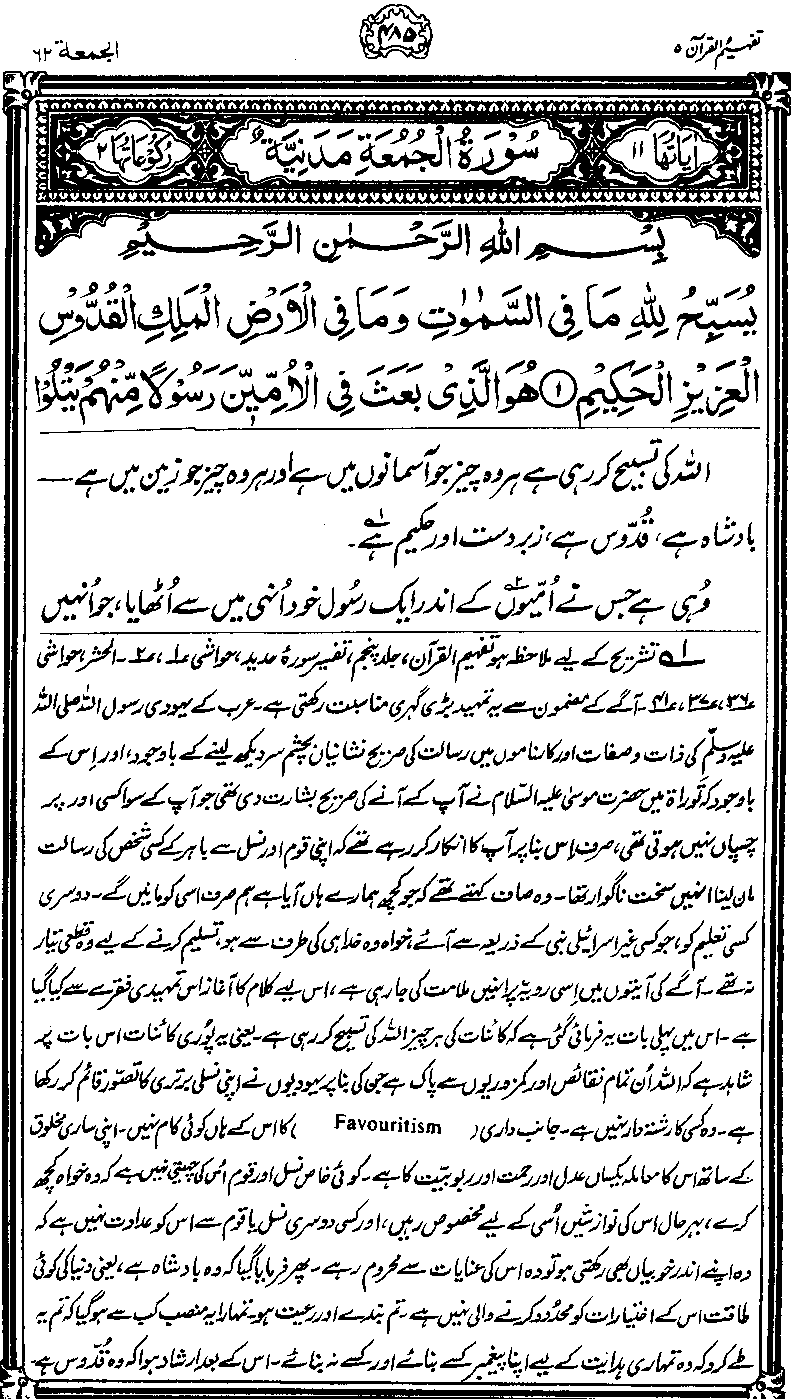 تفہیم القرآن ۵
۴۸۵
الجمعة ۶۲
اٰيَاتُهَا ١١
سُوْرَةُ الْجُمُعَةِ مَدَنِيَّةٌ
رُكُوْعَاتُهَا ٢
بِسْمِ اللهِ الرَّحْمٰنِ الرَّحِيْمِ
يُسَبِّحُ لِلّٰهِ مَا فِي السَّمٰوٰتِ وَمَا فِي الْاَرْضِ الْمَلِكِ الْقُدُّوْسِ
الْعَزِيْزِ الْحَكِيْمِ ① هُوَ الَّذِيْ بَعَثَ فِي الْاُمِّيّٖنَ رَسُوْلًا مِّنْهُمْ يَتْلُوْا
اللہ کی تسبیح کر رہی ہے ہر وہ چیز جو آسمانوں میں ہے اور ہر وہ چیز جو زمین میں ہے ——
بادشاہ ہے، قُدّوس ہے، زبردست اور حکیم ہے۱۔
وُہی ہے جس نے اُمّیوں۲ کے اندر ایک رسُول خود اُنہی میں سے اُٹھایا، جو اُنہیں
۱ تشریح کے لیے ملاحظہ ہو تفہیم القرآن، جلد پنجم، تفسیر سورۂ حدید، حواشی ۱، ۲۔ الحشر، حواشی
۳۶، ۳۷، ۴۱۔ آگے کے مضمون سے یہ تمہید بڑی گہری مناسبت رکھتی ہے۔ عرب کے یہودی رسول اللہ صلی اللہ
علیہ وسلّم کی ذات و صفات اور کارناموں میں رسالت کی صریح نشانیاں بچشمِ سر دیکھ لینے کے باوجود، اور اِس کے
باوجود کہ توراۃ میں حضرت موسیٰ علیہ السّلام نے آپ کے آنے کی صریح بشارت دی تھی جو آپ کے سوا کسی اور پر
چسپاں نہیں ہوتی تھی، صرف اِس بنا پر آپ کا انکار کر رہے تھے کہ اپنی قوم اور نسل سے باہر کے کسی شخص کی رسالت
مان لینا انہیں سخت ناگوار تھا۔ وہ صاف کہتے تھے کہ جو کچھ ہمارے ہاں آیا ہے ہم صرف اسی کو مانیں گے۔ دوسری
کسی تعلیم کو، جو کسی غیر اسرائیلی نبی کے ذریعہ سے آئے، خواہ وہ خدا ہی کی طرف سے ہو، تسلیم کرنے کے لیے وہ قطعی تیار
نہ تھے۔ آگے کی آیتوں میں اِسی رویّہ پر انہیں ملامت کی جا رہی ہے، اس لیے کلام کا آغاز اس تمہیدی فقرے سے کیا گیا
ہے۔ اس میں پہلی بات یہ فرمائی گئی ہے کہ کائنات کی ہر چیز اللہ کی تسبیح کر رہی ہے۔ یعنی یہ پُوری کائنات اس بات پر
شاہد ہے کہ اللہ اُن تمام نقائص اور کمزوریوں سے پاک ہے جن کی بنا پر یہودیوں نے اپنی نسلی برتری کا تصوّر قائم کر رکھا
ہے۔ وہ کسی کا رشتہ دار نہیں ہے۔ جانب داری ( Favouritism ) کا اس کے ہاں کوئی کام نہیں۔ اپنی ساری مخلوق
کے ساتھ اس کا معاملہ یکساں عدل اور رحمت اور ربوبیّت کا ہے۔ کوئی خاص نسل اور قوم اُس کی چہیتی نہیں ہے کہ وہ خواہ کچھ
کرے، بہرحال اس کی نوازشیں اُسی کے لیے مخصوص رہیں، اور کسی دوسری نسل یا قوم سے اس کو عداوت نہیں ہے کہ
وہ اپنے اندر خوبیاں بھی رکھتی ہو تو وہ اس کی عنایات سے محروم رہے۔ پھر فرمایا گیا کہ وہ بادشاہ ہے، یعنی دنیا کی کوئی
طاقت اس کے اختیارات کو محدُود کرنے والی نہیں ہے۔ تم بندے اور رعیت ہو۔ تمہارا یہ منصب کب سے ہو گیا کہ تم یہ
طے کرو کہ وہ تمہاری ہدایت کے لیے اپنا پیغمبر کسے بنائے اور کسے نہ بنائے۔ اس کے بعد ارشاد ہوا کہ وہ قُدّوس ہے۔